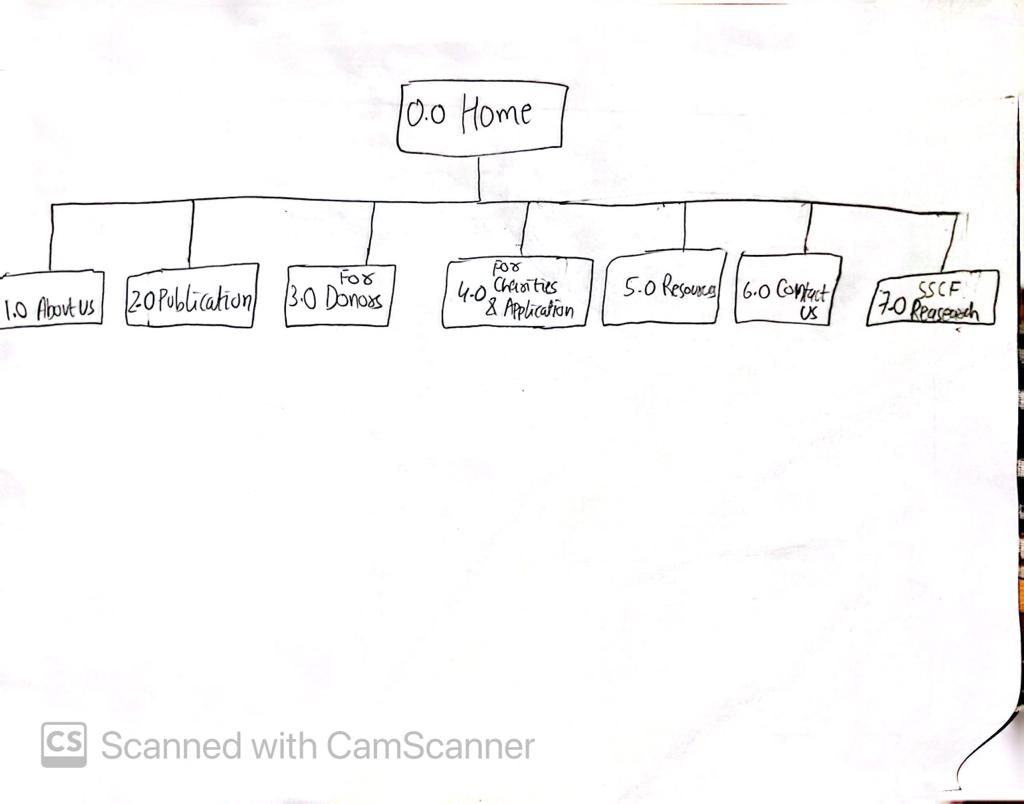 0.0 Home
1.0 About us
2.0 Publication
For
3.0 Donors
For
4.0 Charities
& Application
5.0 Resources
6.0 Contact
us
SSCF
7.0 Reaseach
CS Scanned with CamScanner